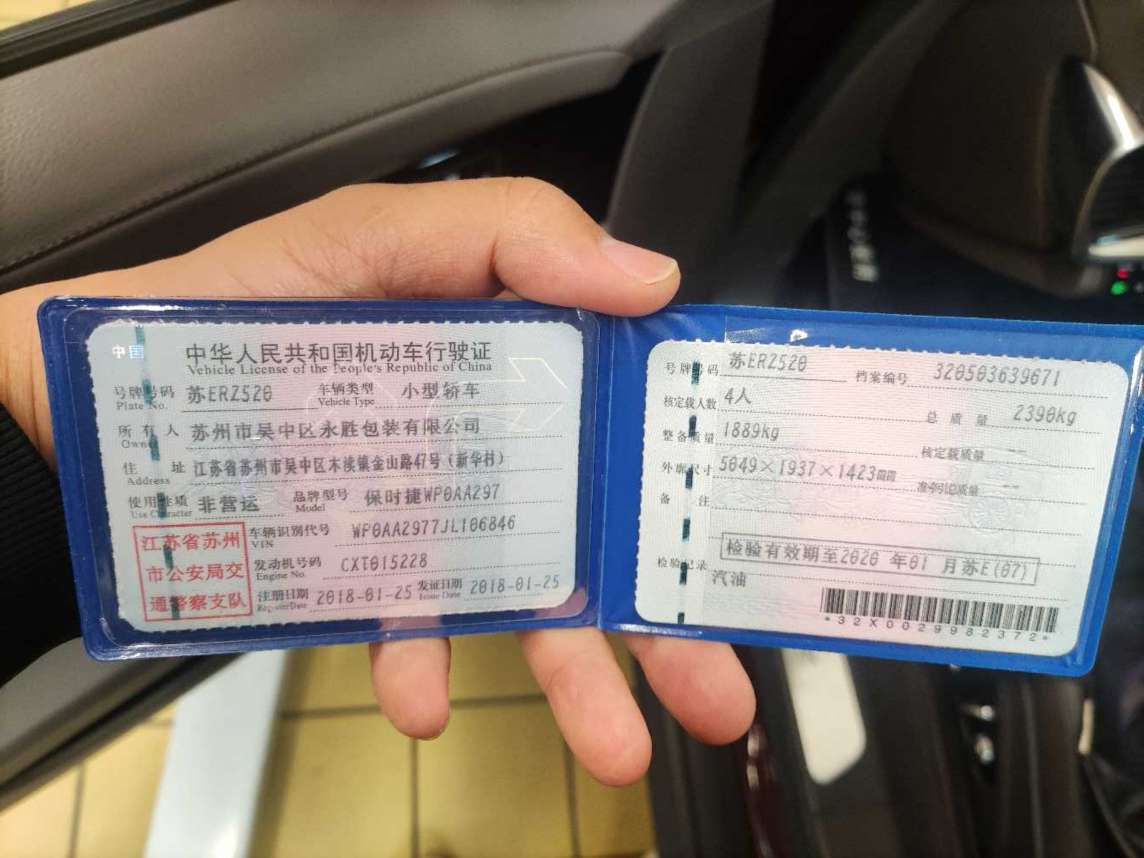 中国
中华人民共和国机动车行驶证
Vehicle License of the People's Republic of China
号牌号码 苏ERZ520 车辆类型 小型轿车
Plate No. Vehicle Type
所有人 苏州市吴中区永胜包装有限公司
Owner
住址 江苏省苏州市吴中区木渎镇金山路47号(新华村)
Address
使用性质 非营运 品牌型号 保时捷WP0AA297
Use Character Model
江苏省苏州
市公安局交
通警察支队
车辆识别代号 WP0AA2977JL106846
VIN
发动机号码 CXT015228
Engine No.
注册日期 2018-01-25 发证日期 2018-01-25
Register Date Issue Date
号牌号码 苏ERZ520 档案编号 320503639671
核定载人数 4人 总质量 2390kg
整备质量 1889kg 核定载质量 --
外廓尺寸 5049×1937×1423mm 准牵引总质量 --
备注
检验记录 检验有效期至2020 年01 月苏E(07)
汽油
*32X0029982372*